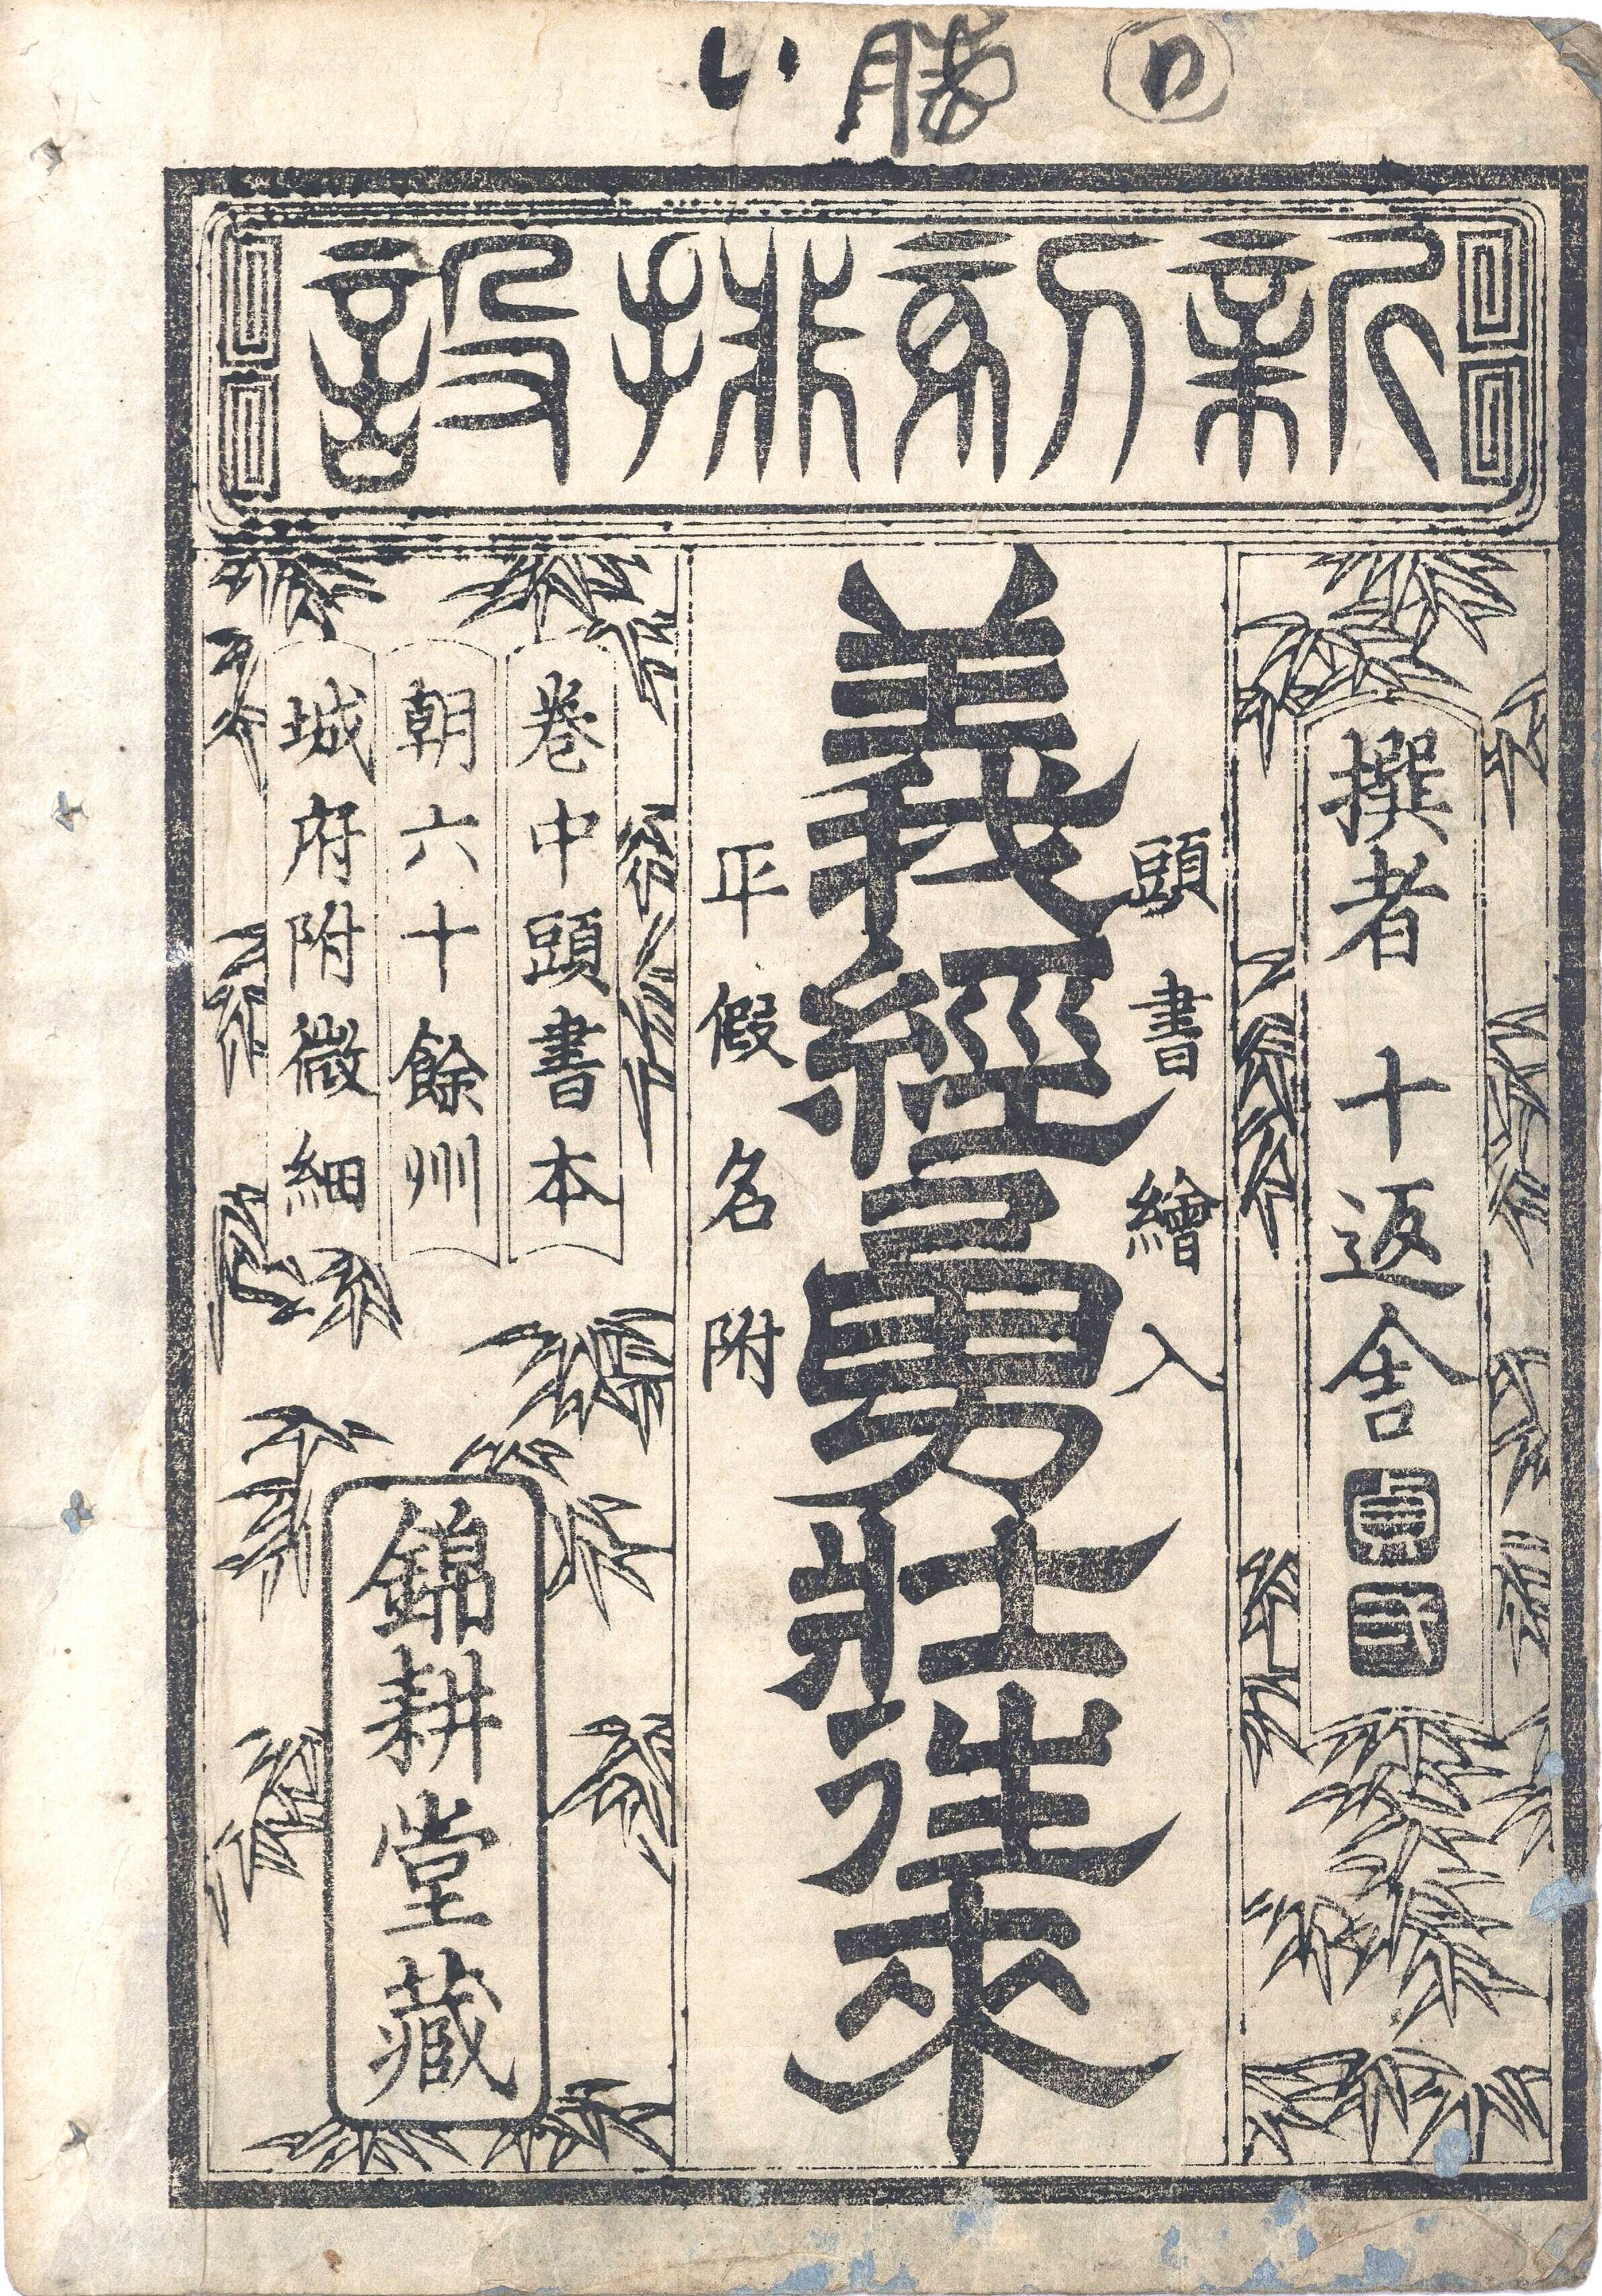 勝い
新刻排設
撰者 十返舍 貞弌
頭書繪入
義經勇壯往來
平假名附
卷中頭書本
朝六十餘州
城府附微細
錦耕堂藏